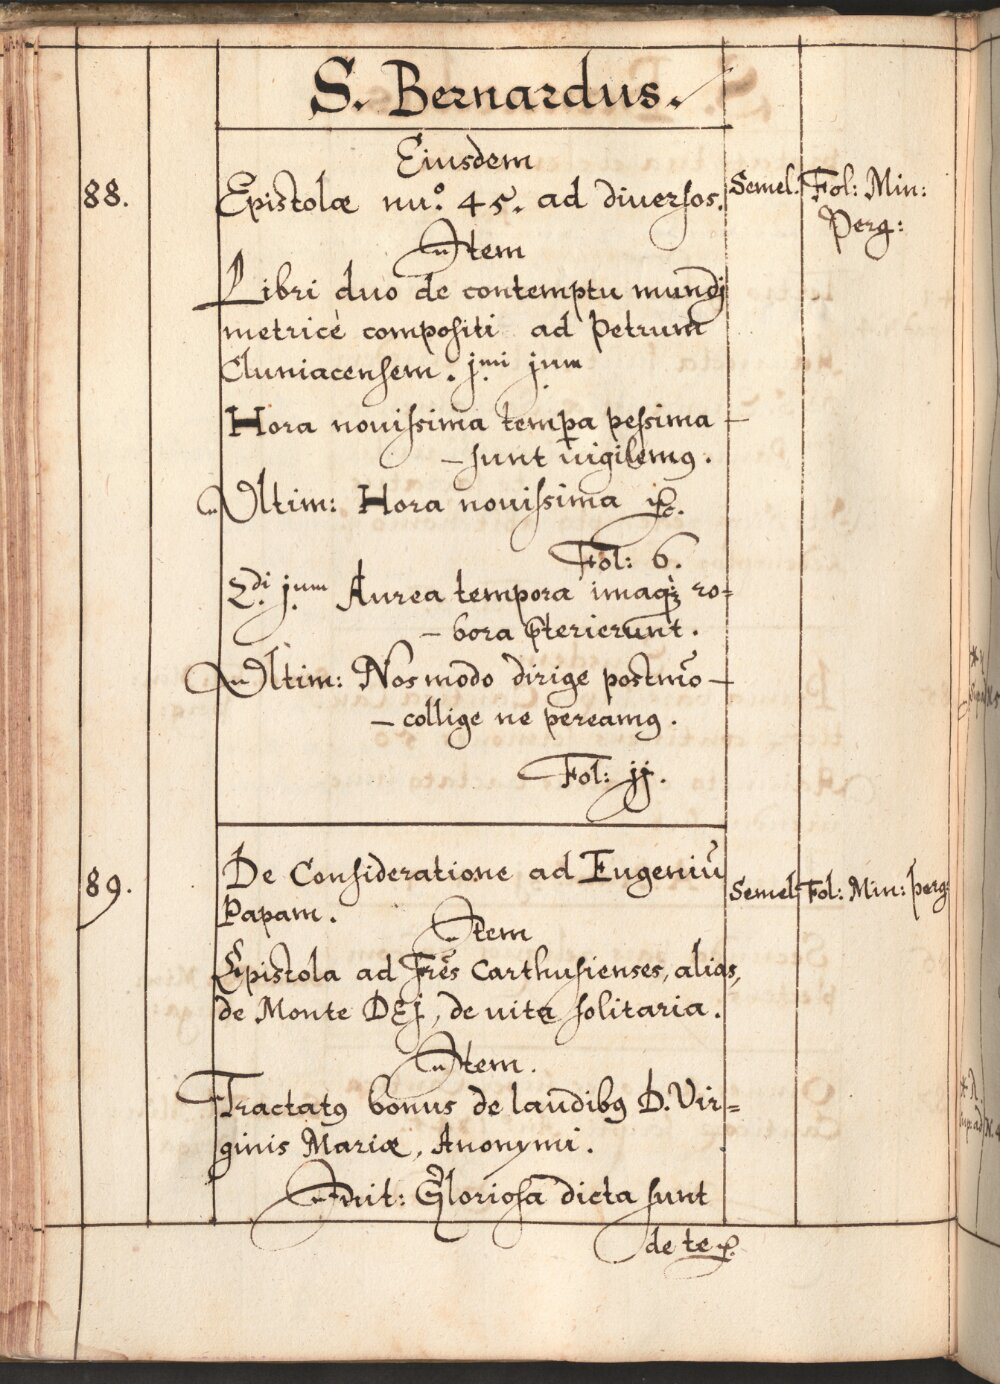 S. Bernardus.
Eiusdem
88. Epistolæ nu.º 45. ad diuersos. Semel. Fol: Min:
Perg:
Item
Libri duo de contemptu mundj
metricè compositi ad Petrum
Cluniacensem. j.mi j.num
Hora nouissima tempa pessima –
– sunt uigilemꝯ.
Vltim: Hora nouissima ꝛc.
Fol: 6.
2.di j.num Aurea tempora imaqꝫ ro=
– bora p̄terierunt.
Vltim: Nos modo dirige postmō –
– collige ne pereamꝯ.
Fol: jj.
89. De Consideratione ad Eugeniū Semel. Fol: Min: perg:
Papam.
Item
Epistola ad Frēs Carthusienses, alias,
de Monte DEJ, de uita solitaria.
Item.
Tractatꝯ bonus de laudibꝯ D. Vir=
ginis Mariæ, Anonymi.
Init: Gloriosa dicta sunt
de te ꝛc.